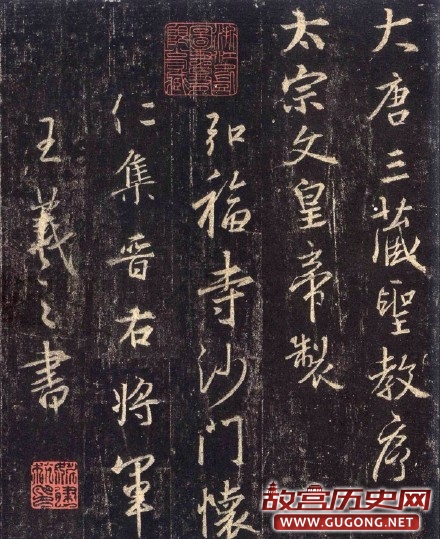 大唐三藏聖教序
太宗文皇帝製
弘福寺沙門懷
仁集晉右將軍
王羲之書
故宫历史网
WWW.GUGONG.NET